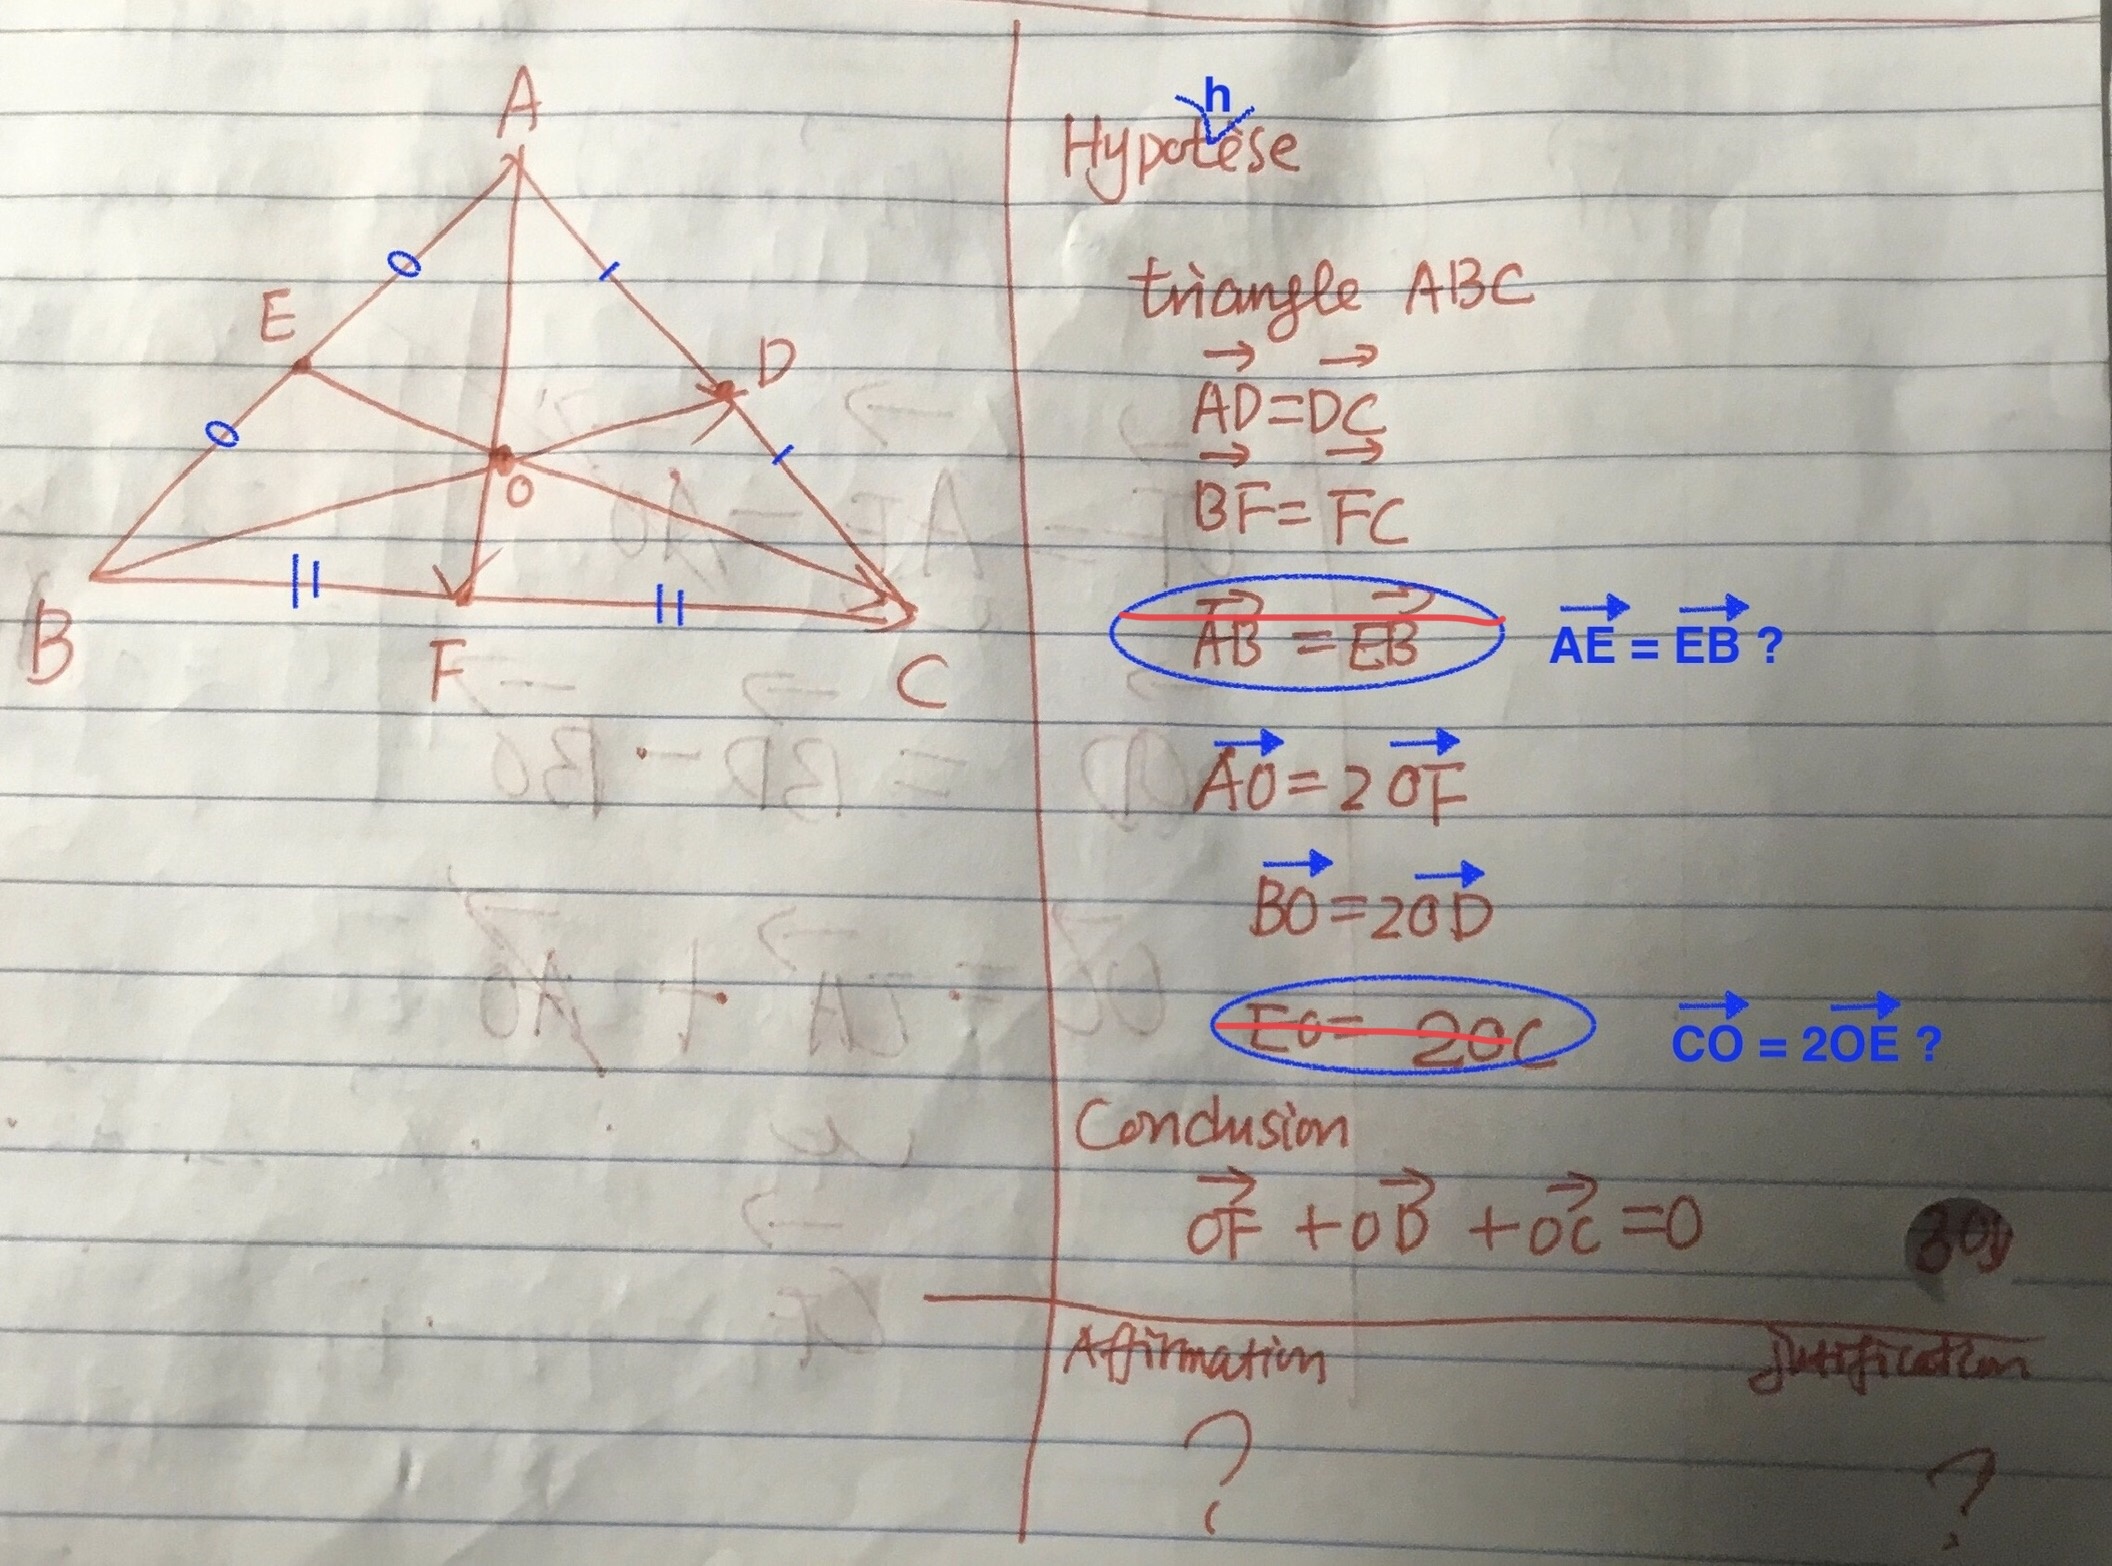 A
E
D
O
B
F
C
h
Hypotèse
triangle ABC
AD=DC
BF=FC
AB = EB AE = EB ?
AO=2OF
BO=2OD
EO= 2OC CO = 2OE ?
Conclusion
OF +OD +OC =0
Affirmation Justification
? ?